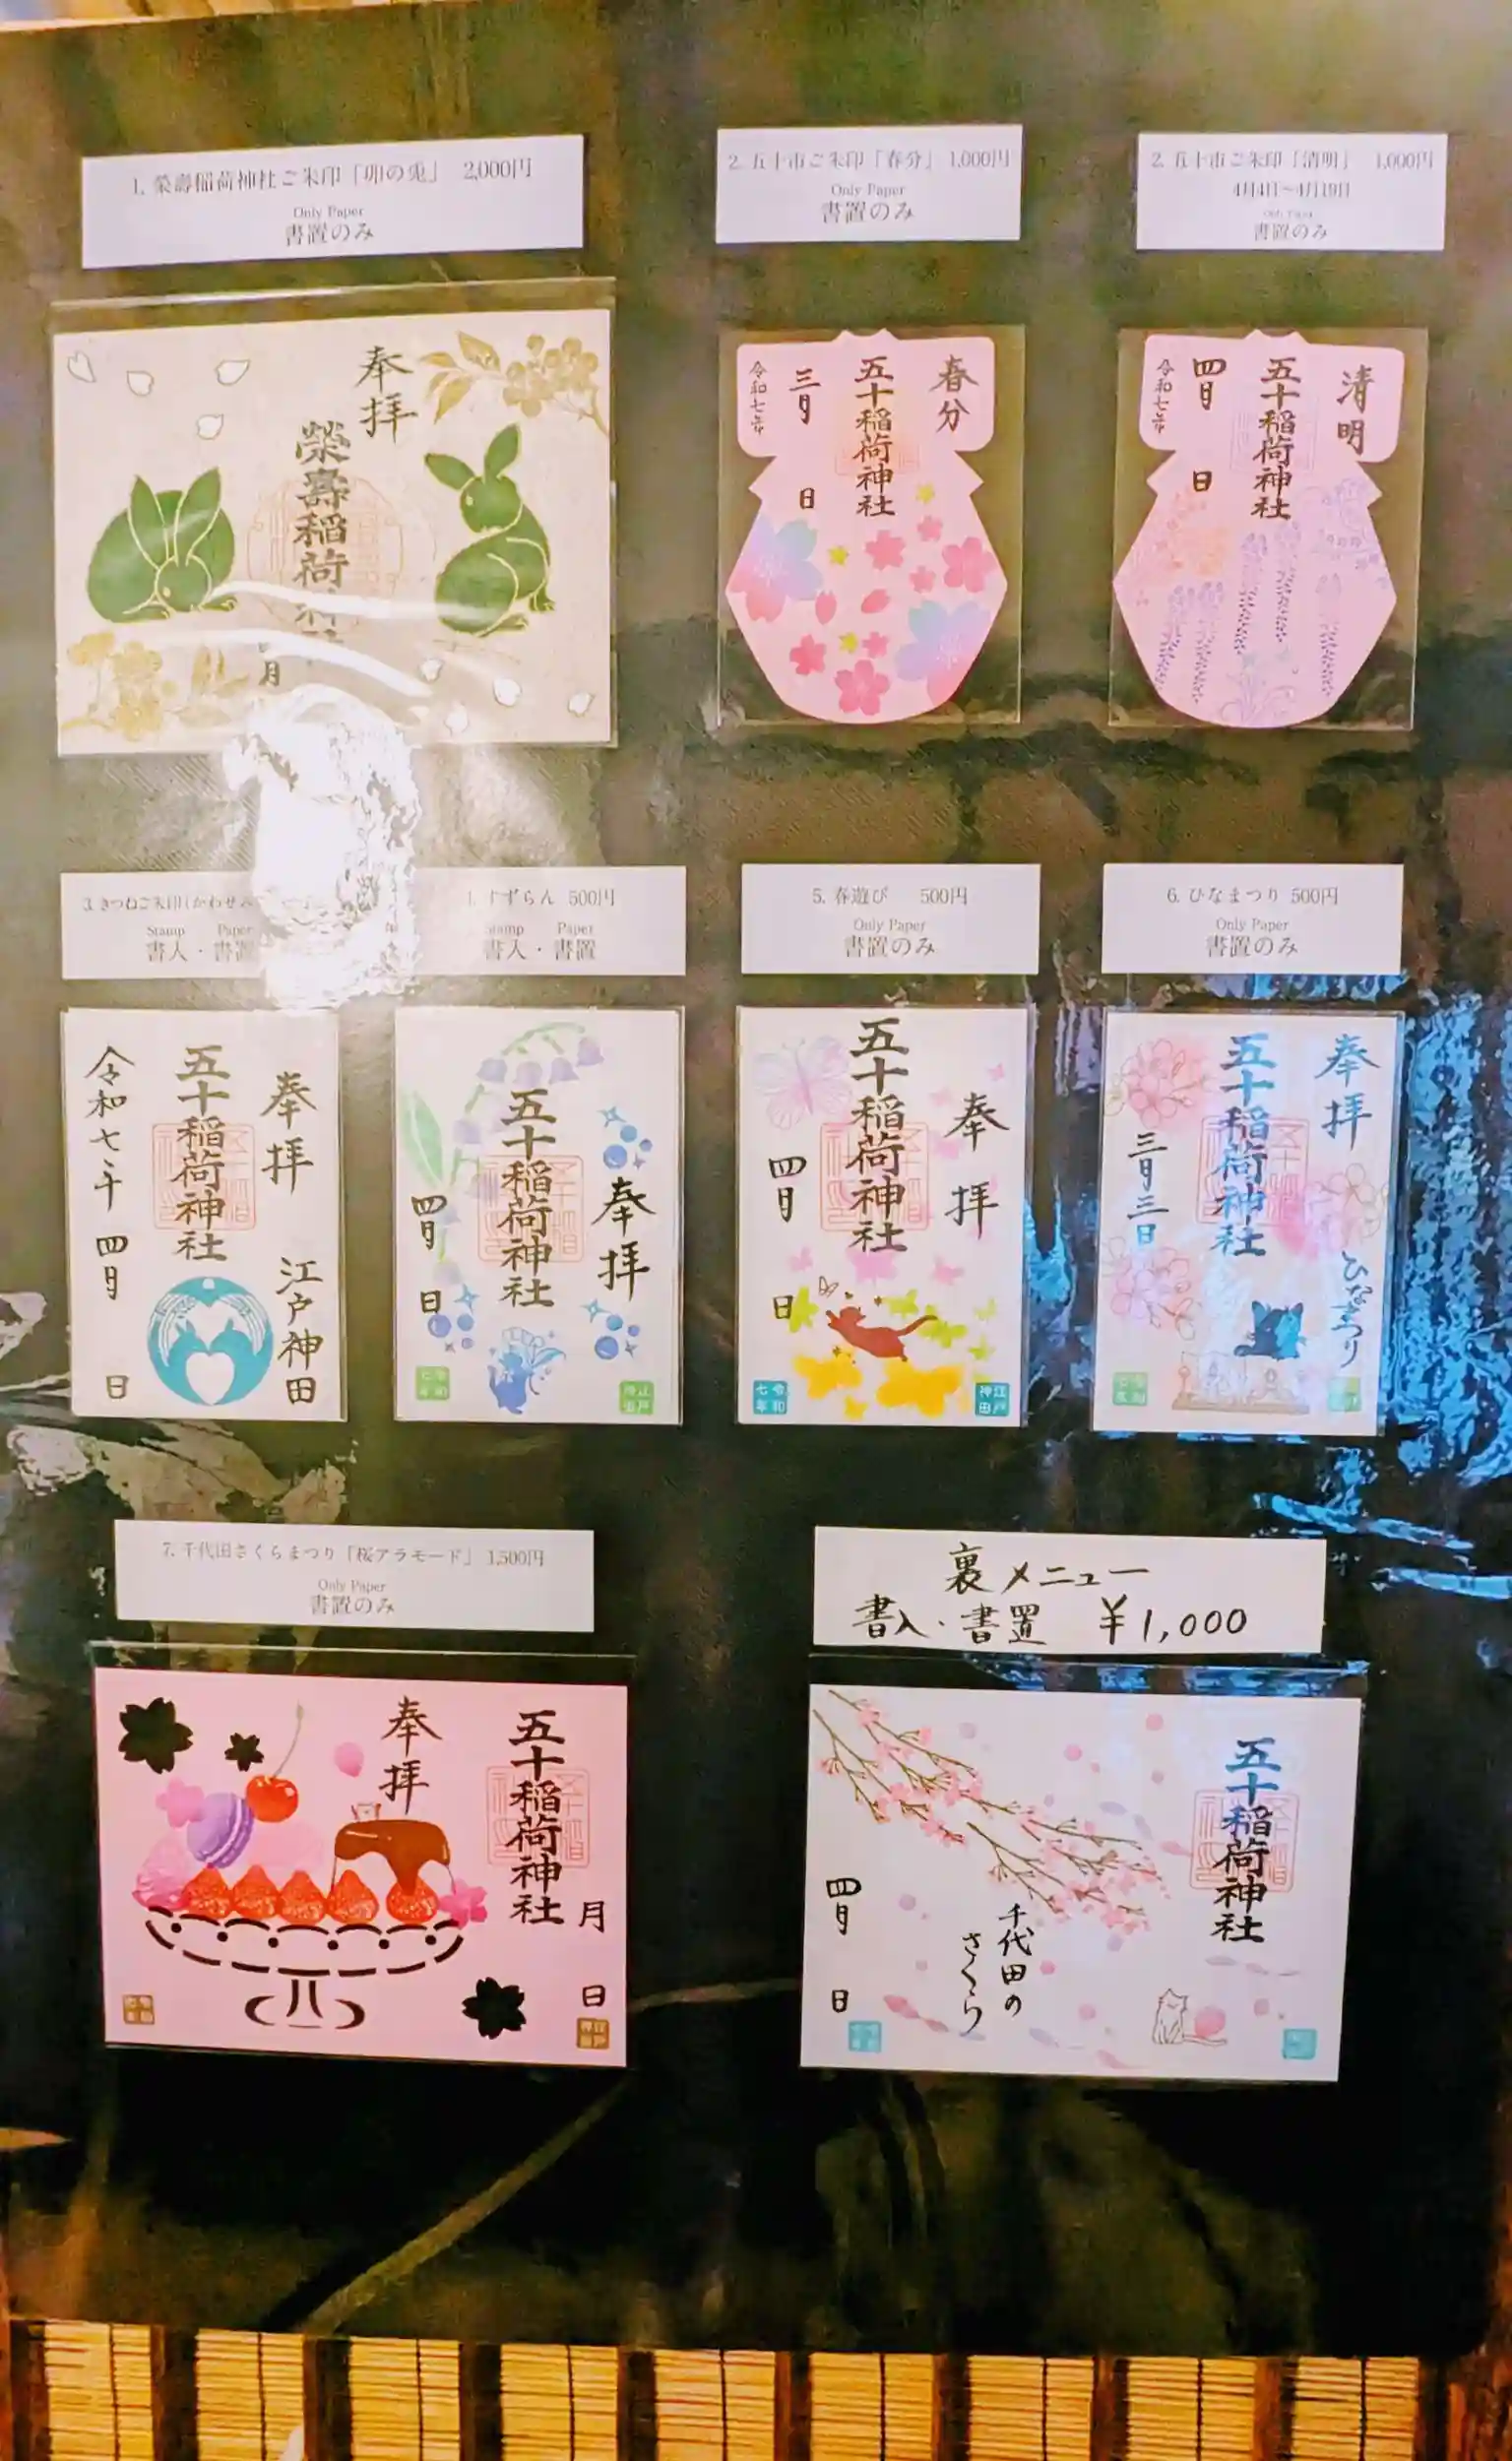 1. 榮壽稲荷神社ご朱印「卯の兎」 2,000円
Only Paper
書置のみ
2. 五十市ご朱印「春分」 1,000円
Only Paper
書置のみ
2. 五十市ご朱印「清明」 1,000円
4月4日～4月19日
Only Paper
書置のみ
奉拝
榮壽稲荷神
月
春分
五十稲荷神社
三月 日
令和七年
清明
五十稲荷神社
四月 日
令和七年
3. きつねご朱印(かわせみ
Stamp Paper
書入・書置
すずらん 500円
Stamp Paper
書入・書置
5. 春遊び 500円
Only Paper
書置のみ
6. ひなまつり 500円
Only Paper
書置のみ
奉拝 江戸神田
五十稲荷神社
令和七年 四月 日
奉拝
五十稲荷神社
四月 日
令和七年
江戸神田
奉拝
五十稲荷神社
四月 日
令和七年
江戸神田
奉拝 ひなまつり
五十稲荷神社
三月三日
令和七年
7. 千代田さくらまつり「桜アラモード」 1,500円
Only Paper
書置のみ
裏メニュー
書入・書置 ¥1,000
五十稲荷神社
奉拝
月 日
令和七年
江戸神田
五十稲荷神社
千代田の
さくら
四月 日